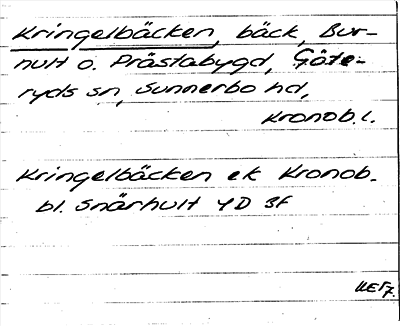 Kringelbäcken, bäck, Bur-
hult o. Prästabygd, Göte-
ryds sn, Sunnerbo hd,
Kronob. l.
Kringelbäcken ek Kronob.
bl. Snärhult 4D 3f